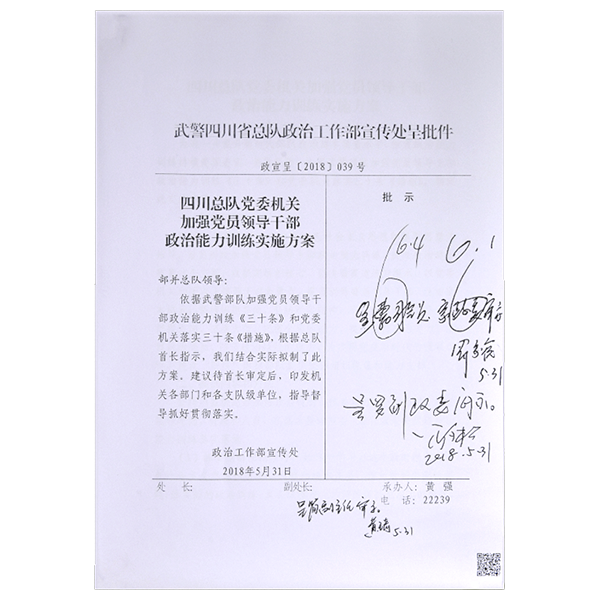 武警四川省总队政治工作部宣传处呈批件
政宣呈〔2018〕039号
四川总队党委机关
加强党员领导干部
政治能力训练实施方案
部并总队领导:
依据武警部队加强党员领导干
部政治能力训练《三十条》和党委
机关落实三十条《措施》,根据总队
首长指示,我们结合实际拟制了此
方案。建议待首长审定后,印发机
关各部门和各支队级单位,指导督
导抓好贯彻落实。
政治工作部宣传处
2018年5月31日
批 示
6.4 6.1
5.31
呈罗副政委阅示。
2018.5.31
处 长: 副处长: 承办人:黄 强
电 话:22239
5.31